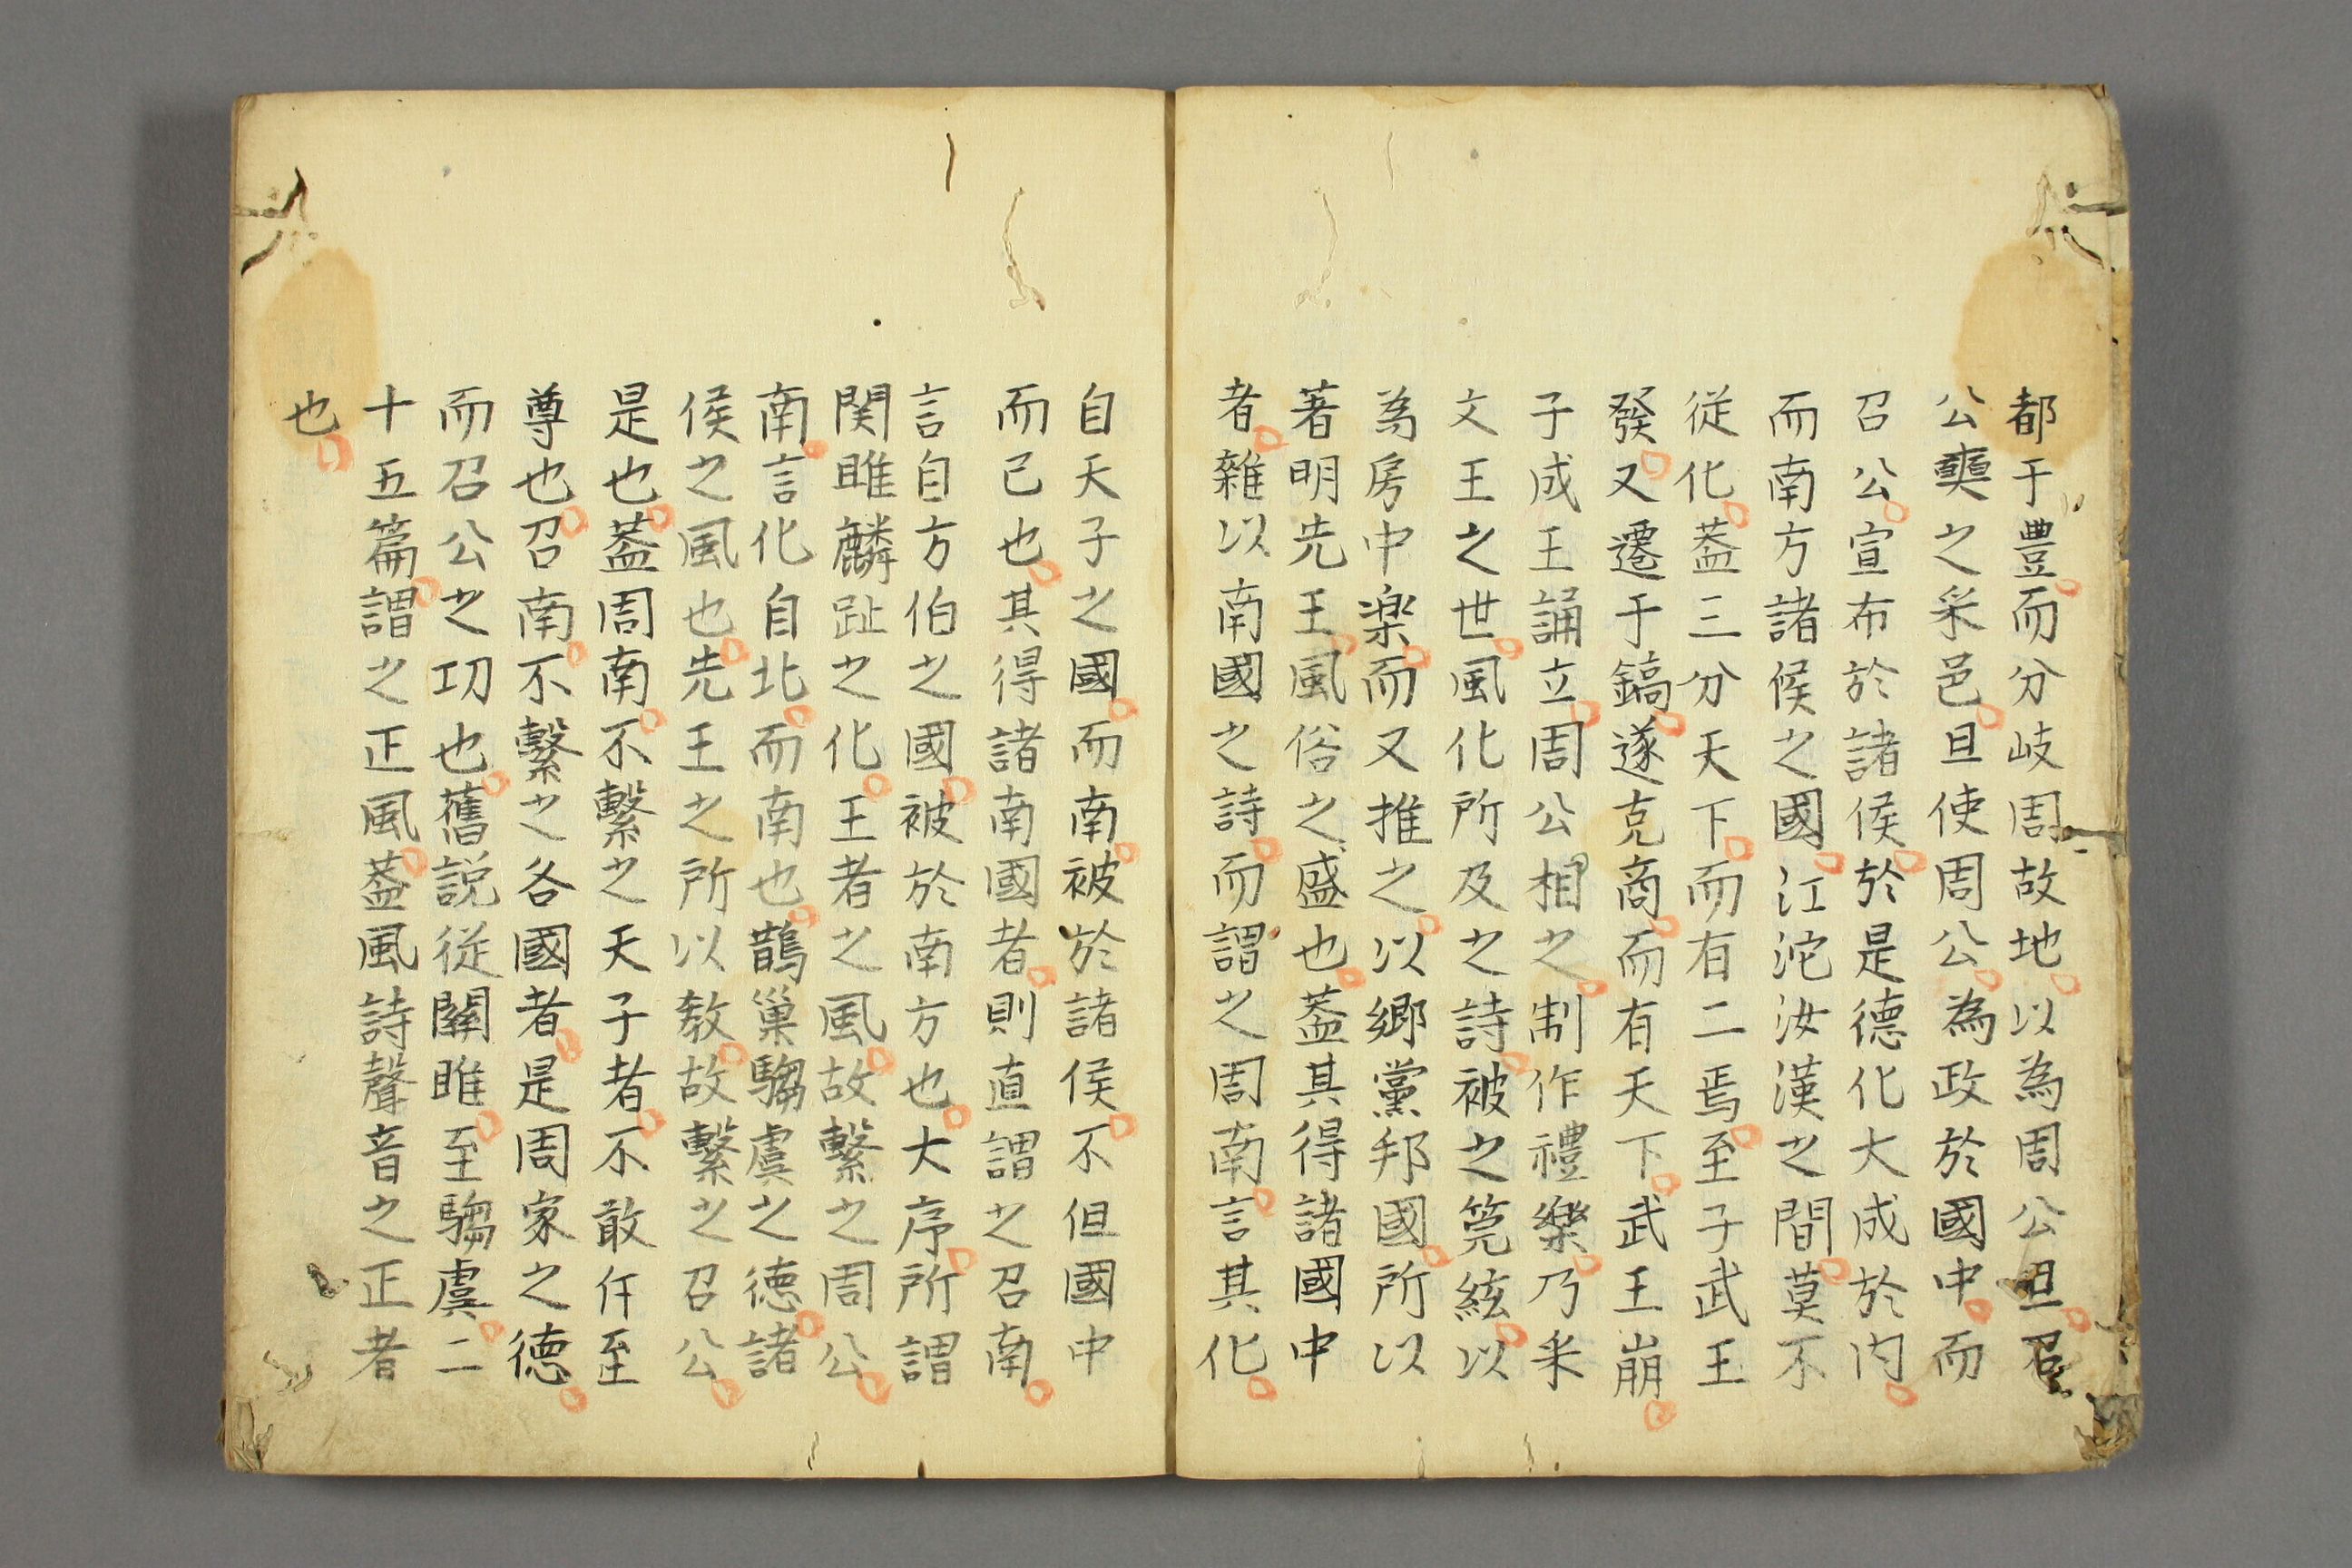 都于豊而分岐周故地以為周公旦召
公奭之采邑旦使周公為政於國中而
召公宣布於諸侯於是德化大成於内
而南方諸候之國江沱汝漢之間莫不
從化葢三分天下而有二焉至子武王
發又遷于鎬遂克商而有天下武王崩
子成王誦立周公相之制作禮樂乃采
文王之世風化所及之詩被之筦絃以
為房中楽而又推之以鄉黨邦國所以
著明先王風俗之盛也葢其得諸國中
者雜以南國之詩而謂之周南言其化
自天子之國而南被於諸侯不但國中
而已也其得諸南國者則直謂之召南
言自方伯之國被於南方也大序所謂
関雎麟趾之化王者之風故繫之周公
南言化自北而南也鵲巢騶虞之徳諸
侯之風也先王之所以教故繫之召公
是也葢周南不繫之天子者不敢仟至
尊也召南不繫之各國者是周家之德
而召公之功也舊説從關雎至騶虞二
十五篇謂之正風葢風詩聲音之正者
也